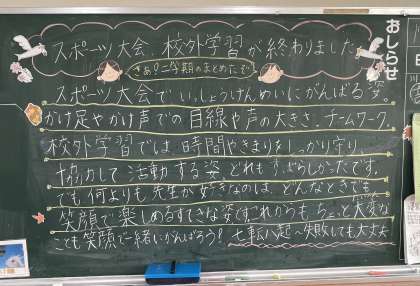 おしらせ
スポーツ大会、校外学習が終わりました
さぁ!二学期のまとめだぞ
スポーツ大会で いっしょうけんめいにがんばる姿。
かけ足やかけ声での目線や声の大きさ、チームワーク
校外学習では、時間やきまりをしっかり守り、
協力して活動する姿、どれもすばらしかったです。
でも何よりも先生が好きなのは、どんなときでも
笑顔で楽しめるすてきな姿です。これからも、ちょっと大変な
ことも笑顔で一緒にがんばろう! 七転び八起 〜失敗しても大丈夫